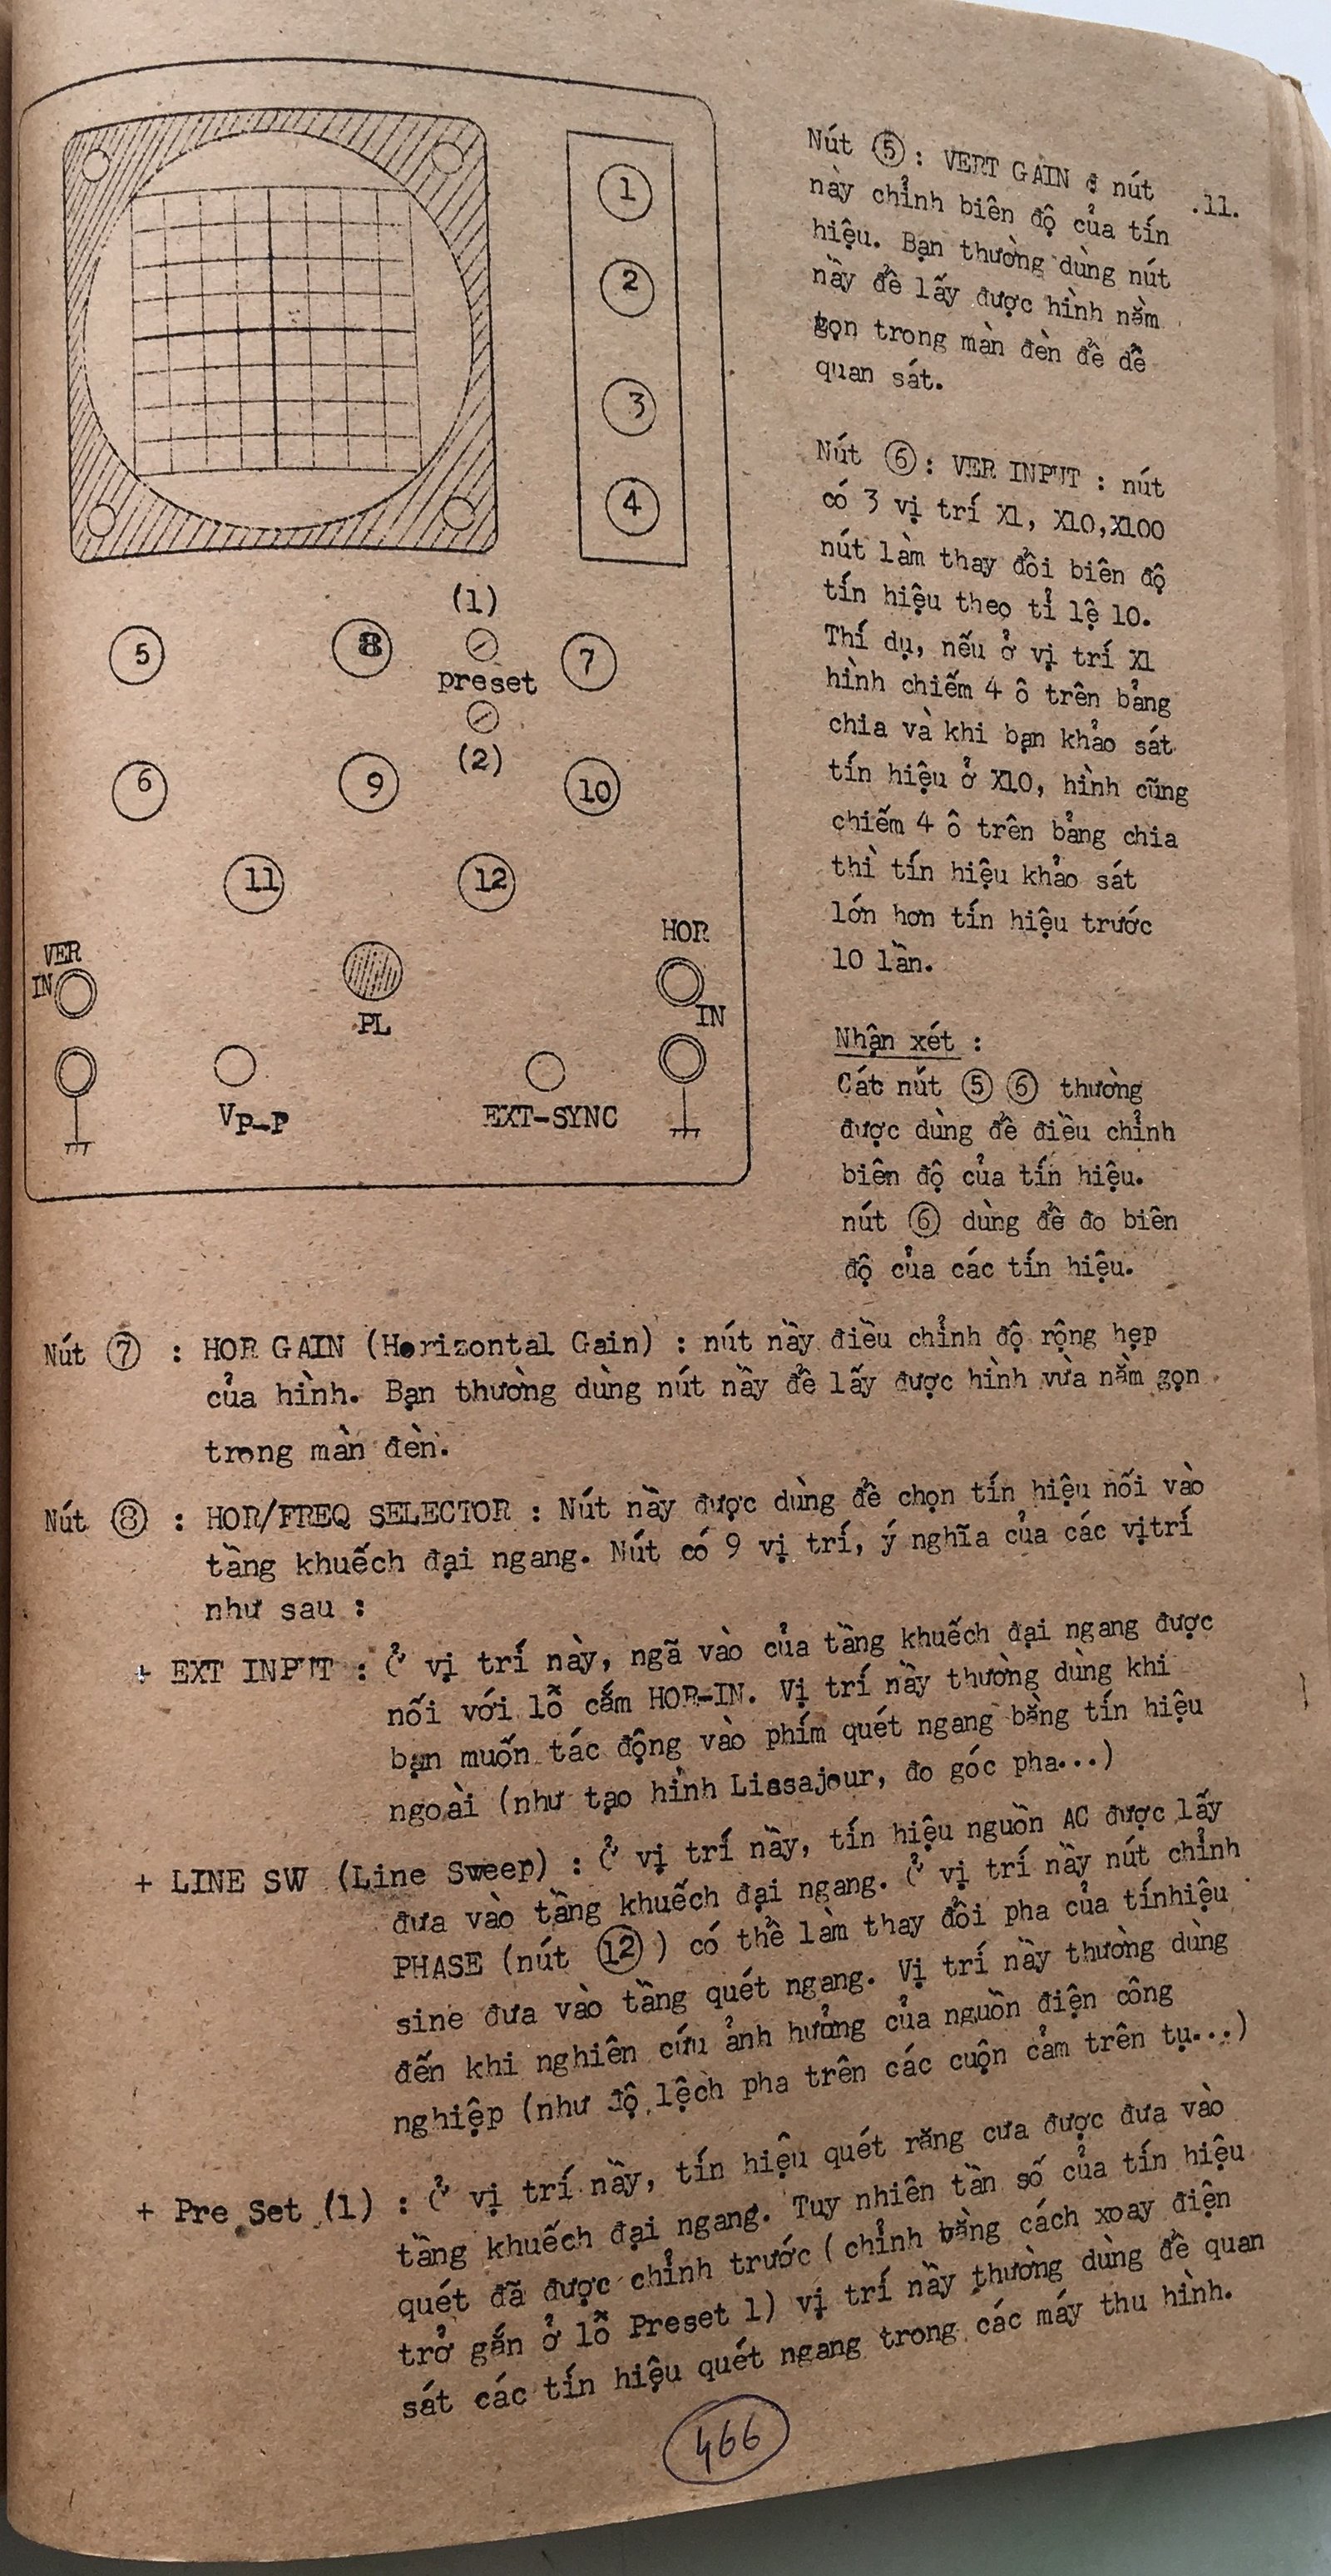 .11.
1
2
3
4
(1)
5
8
preset
7
(2)
6
9
10
11
12
VER
IN
HOR
IN
PL
VP-P
EXT-SYNC
Nút 5 : VERT GAIN : nút
này chỉnh biên độ của tín
hiệu. Bạn thường dùng nút
nầy để lấy được hình nằm
gọn trong màn đèn để dễ
quan sát.
Nút 6 : VER INPUT : nút
có 3 vị trí X1, X10,X100
nút làm thay đổi biên độ
tín hiệu theo tỉ lệ 10.
Thí dụ, nếu ở vị trí X1
hình chiếm 4 ô trên bảng
chia và khi bạn khảo sát
tín hiệu ở X10, hình cũng
chiếm 4 ô trên bảng chia
thì tín hiệu khảo sát
lớn hơn tín hiệu trước
10 lần.
Nhận xét :
Cát nút 5 6 thường
được dùng để điều chỉnh
biên độ của tín hiệu.
nút 6 dùng để đo biên
độ của các tín hiệu.
Nút 7 : HOR GAIN (Horizontal Gain) : nút nầy điều chỉnh độ rộng hẹp
của hình. Bạn thường dùng nút nầy để lấy được hình vừa nằm gọn
trong màn đèn.
Nút 8 : HOR/FREQ SELECTOR : Nút nầy được dùng để chọn tín hiệu nối vào
tầng khuếch đại ngang. Nút có 9 vị trí, ý nghĩa của các vịtrí
như sau :
+ EXT INPUT : Ở vị trí này, ngã vào của tầng khuếch đại ngang được
nối với lỗ cắm HOR-IN. Vị trí nầy thường dùng khi
bạn muốn tác động vào phím quét ngang bằng tín hiệu
ngoài (như tạo hình Lissajour, đo góc pha...)
+ LINE SW (Line Sweep) : Ở vị trí nầy, tín hiệu nguồn AC được lấy
đưa vào tầng khuếch đại ngang. Ở vị trí nầy nút chỉnh
PHASE (nút 12 ) có thể làm thay đổi pha của tínhiệu
sine đưa vào tầng quét ngang. Vị trí nầy thường dùng
đến khi nghiên cứu ảnh hưởng của nguồn điện công
nghiệp (như độ lệch pha trên các cuộn cảm trên tụ...)
+ Pre Set (1) : Ở vị trí nầy, tín hiệu quét răng cưa được đưa vào
tầng khuếch đại ngang. Tuy nhiên tần số của tín hiệu
quét đã được chỉnh trước ( chỉnh bằng cách xoay điện
trở gắn ở lỗ Preset 1) vị trí nầy thường dùng để quan
sát các tín hiệu quét ngang trong các máy thu hình.
466